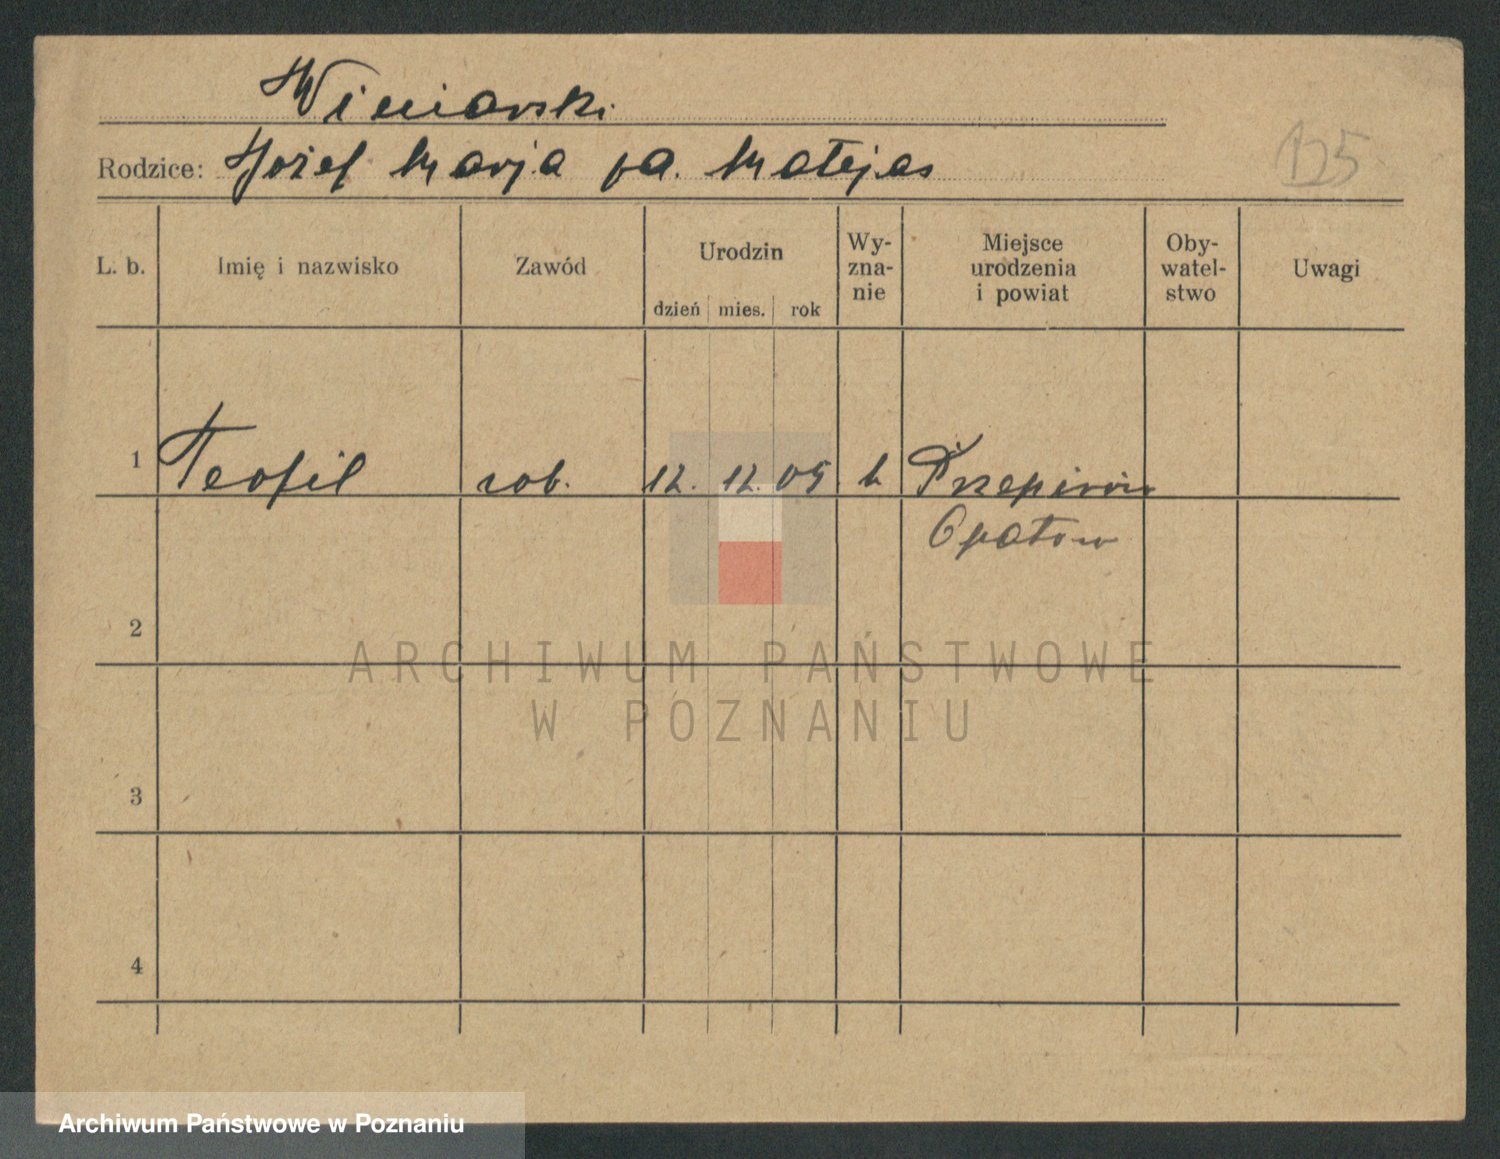 Winiarski
Rodzice: Józef Marja zd. Matejas
125
L. b. Imię i nazwisko Zawód Urodzin dzień mies. rok Wy-zna-nie Miejsce urodzenia i powiat Oby-watel-stwo Uwagi
1 Teofil rob. 12. 12. 05 k Przepiórów
Opatów
2
3
4
ARCHIWUM PAŃSTWOWE
W POZNANIU
Archiwum Państwowe w Poznaniu